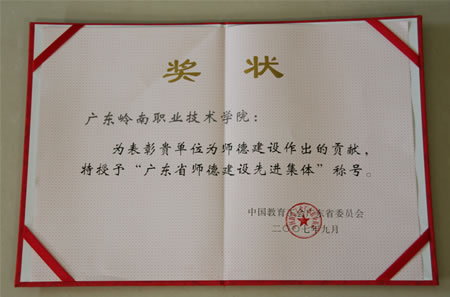 奖 状
广东岭南职业技术学院：
为表彰贵单位为师德建设作出的贡献，
特授予“广东省师德建设先进集体”称号。
中国教育工会广东省委员会
二〇〇七年九月